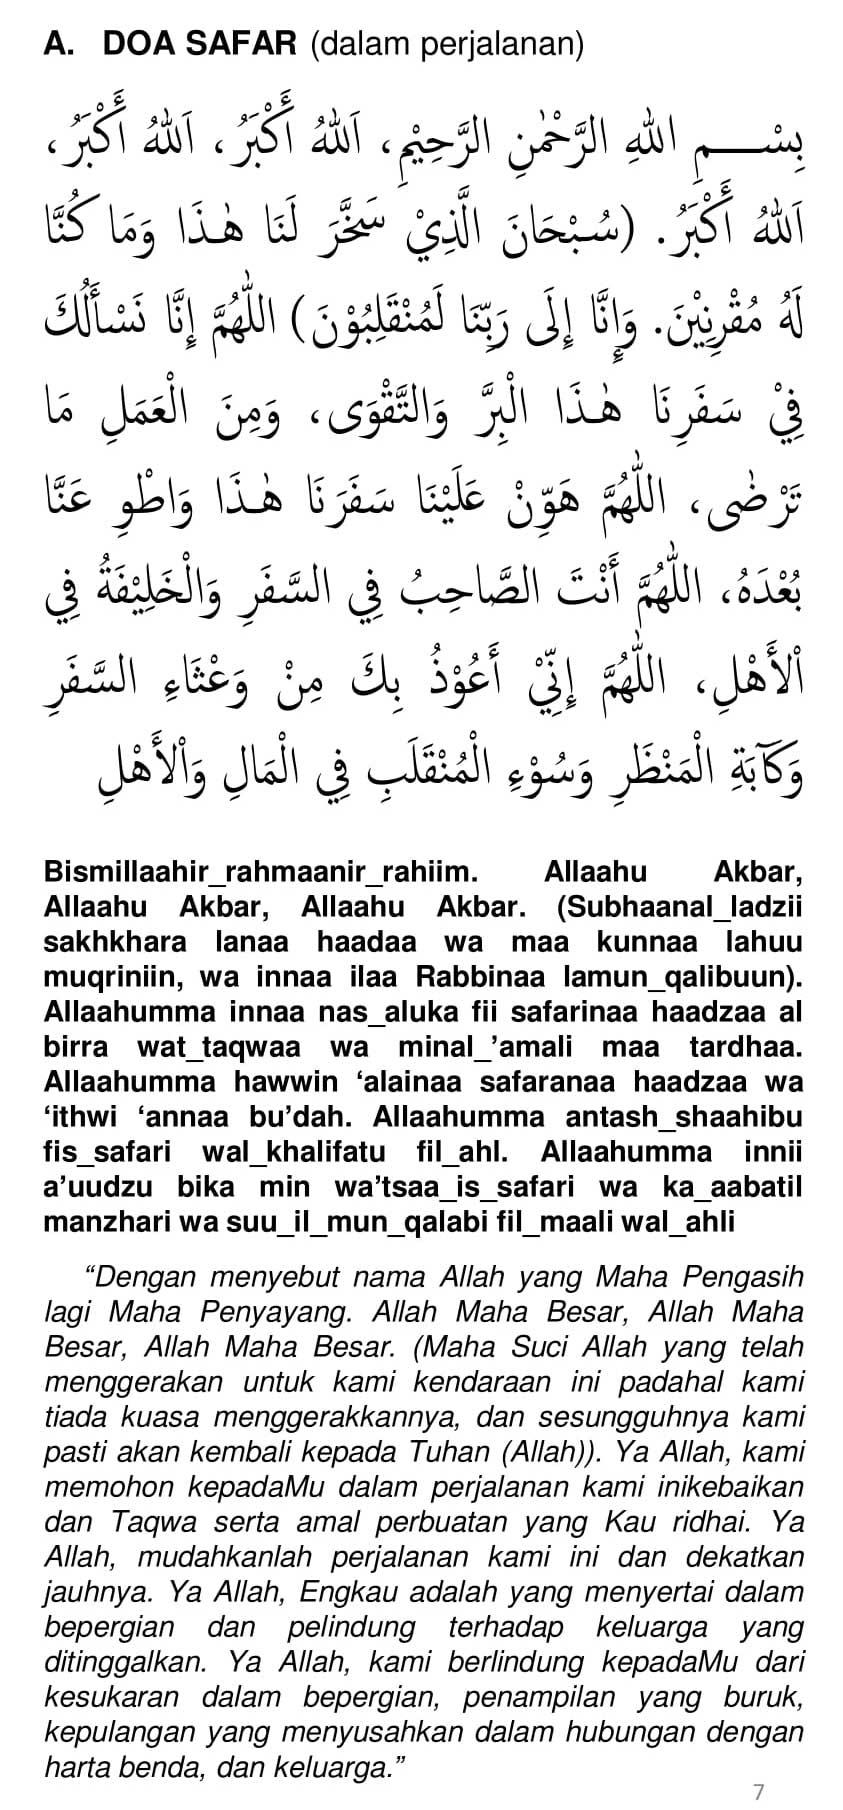 A. DOA SAFAR (dalam perjalanan)
بِسْـــمِ اللهِ الرَّحْمٰنِ الرَّحِيْمِ، اَللهُ أَكْبَرُ، اَللهُ أَكْبَرُ،
اَللهُ أَكْبَرُ. (سُبْحَانَ الَّذِيْ سَخَّرَ لَنَا هٰذَا وَمَا كُنَّا
لَهُ مُقْرِنِيْنَ. وَإِنَّا إِلَى رَبِّنَا لَمُنْقَلِبُوْنَ) اللّٰهُمَّ إِنَّا نَسْأَلُكَ
فِيْ سَفَرِنَا هٰذَا الْبِرَّ وَالتَّقْوَى، وَمِنَ الْعَمَلِ مَا
تَرْضَى، اللّٰهُمَّ هَوِّنْ عَلَيْنَا سَفَرَنَا هٰذَا وَاطْوِ عَنَّا
بُعْدَهُ، اللّٰهُمَّ أَنْتَ الصَّاحِبُ فِي السَّفَرِ وَالْخَلِيْفَةُ فِي
الْأَهْلِ، اللّٰهُمَّ إِنِّيْ أَعُوْذُ بِكَ مِنْ وَعْثَاءِ السَّفَرِ
وَكَآبَةِ الْمَنْظَرِ وَسُوْءِ الْمُنْقَلَبِ فِي الْمَالِ وَالْأَهْلِ
Bismillaahir_rahmaanir_rahiim. Allaahu Akbar,
Allaahu Akbar, Allaahu Akbar. (Subhaanal_ladzii
sakhkhara lanaa haadaa wa maa kunnaa lahuu
muqriniin, wa innaa ilaa Rabbinaa lamun_qalibuun).
Allaahumma innaa nas_aluka fii safarinaa haadzaa al
birra wat_taqwaa wa minal_’amali maa tardhaa.
Allaahumma hawwin ‘alainaa safaranaa haadzaa wa
‘ithwi ‘annaa bu’dah. Allaahumma antash_shaahibu
fis_safari wal_khalifatu fil_ahl. Allaahumma innii
a’uudzu bika min wa’tsaa_is_safari wa ka_aabatil
manzhari wa suu_il_mun_qalabi fil_maali wal_ahli
“Dengan menyebut nama Allah yang Maha Pengasih
lagi Maha Penyayang. Allah Maha Besar, Allah Maha
Besar, Allah Maha Besar. (Maha Suci Allah yang telah
menggerakan untuk kami kendaraan ini padahal kami
tiada kuasa menggerakkannya, dan sesungguhnya kami
pasti akan kembali kepada Tuhan (Allah)). Ya Allah, kami
memohon kepadaMu dalam perjalanan kami inikebaikan
dan Taqwa serta amal perbuatan yang Kau ridhai. Ya
Allah, mudahkanlah perjalanan kami ini dan dekatkan
jauhnya. Ya Allah, Engkau adalah yang menyertai dalam
bepergian dan pelindung terhadap keluarga yang
ditinggalkan. Ya Allah, kami berlindung kepadaMu dari
kesukaran dalam bepergian, penampilan yang buruk,
kepulangan yang menyusahkan dalam hubungan dengan
harta benda, dan keluarga.”
7